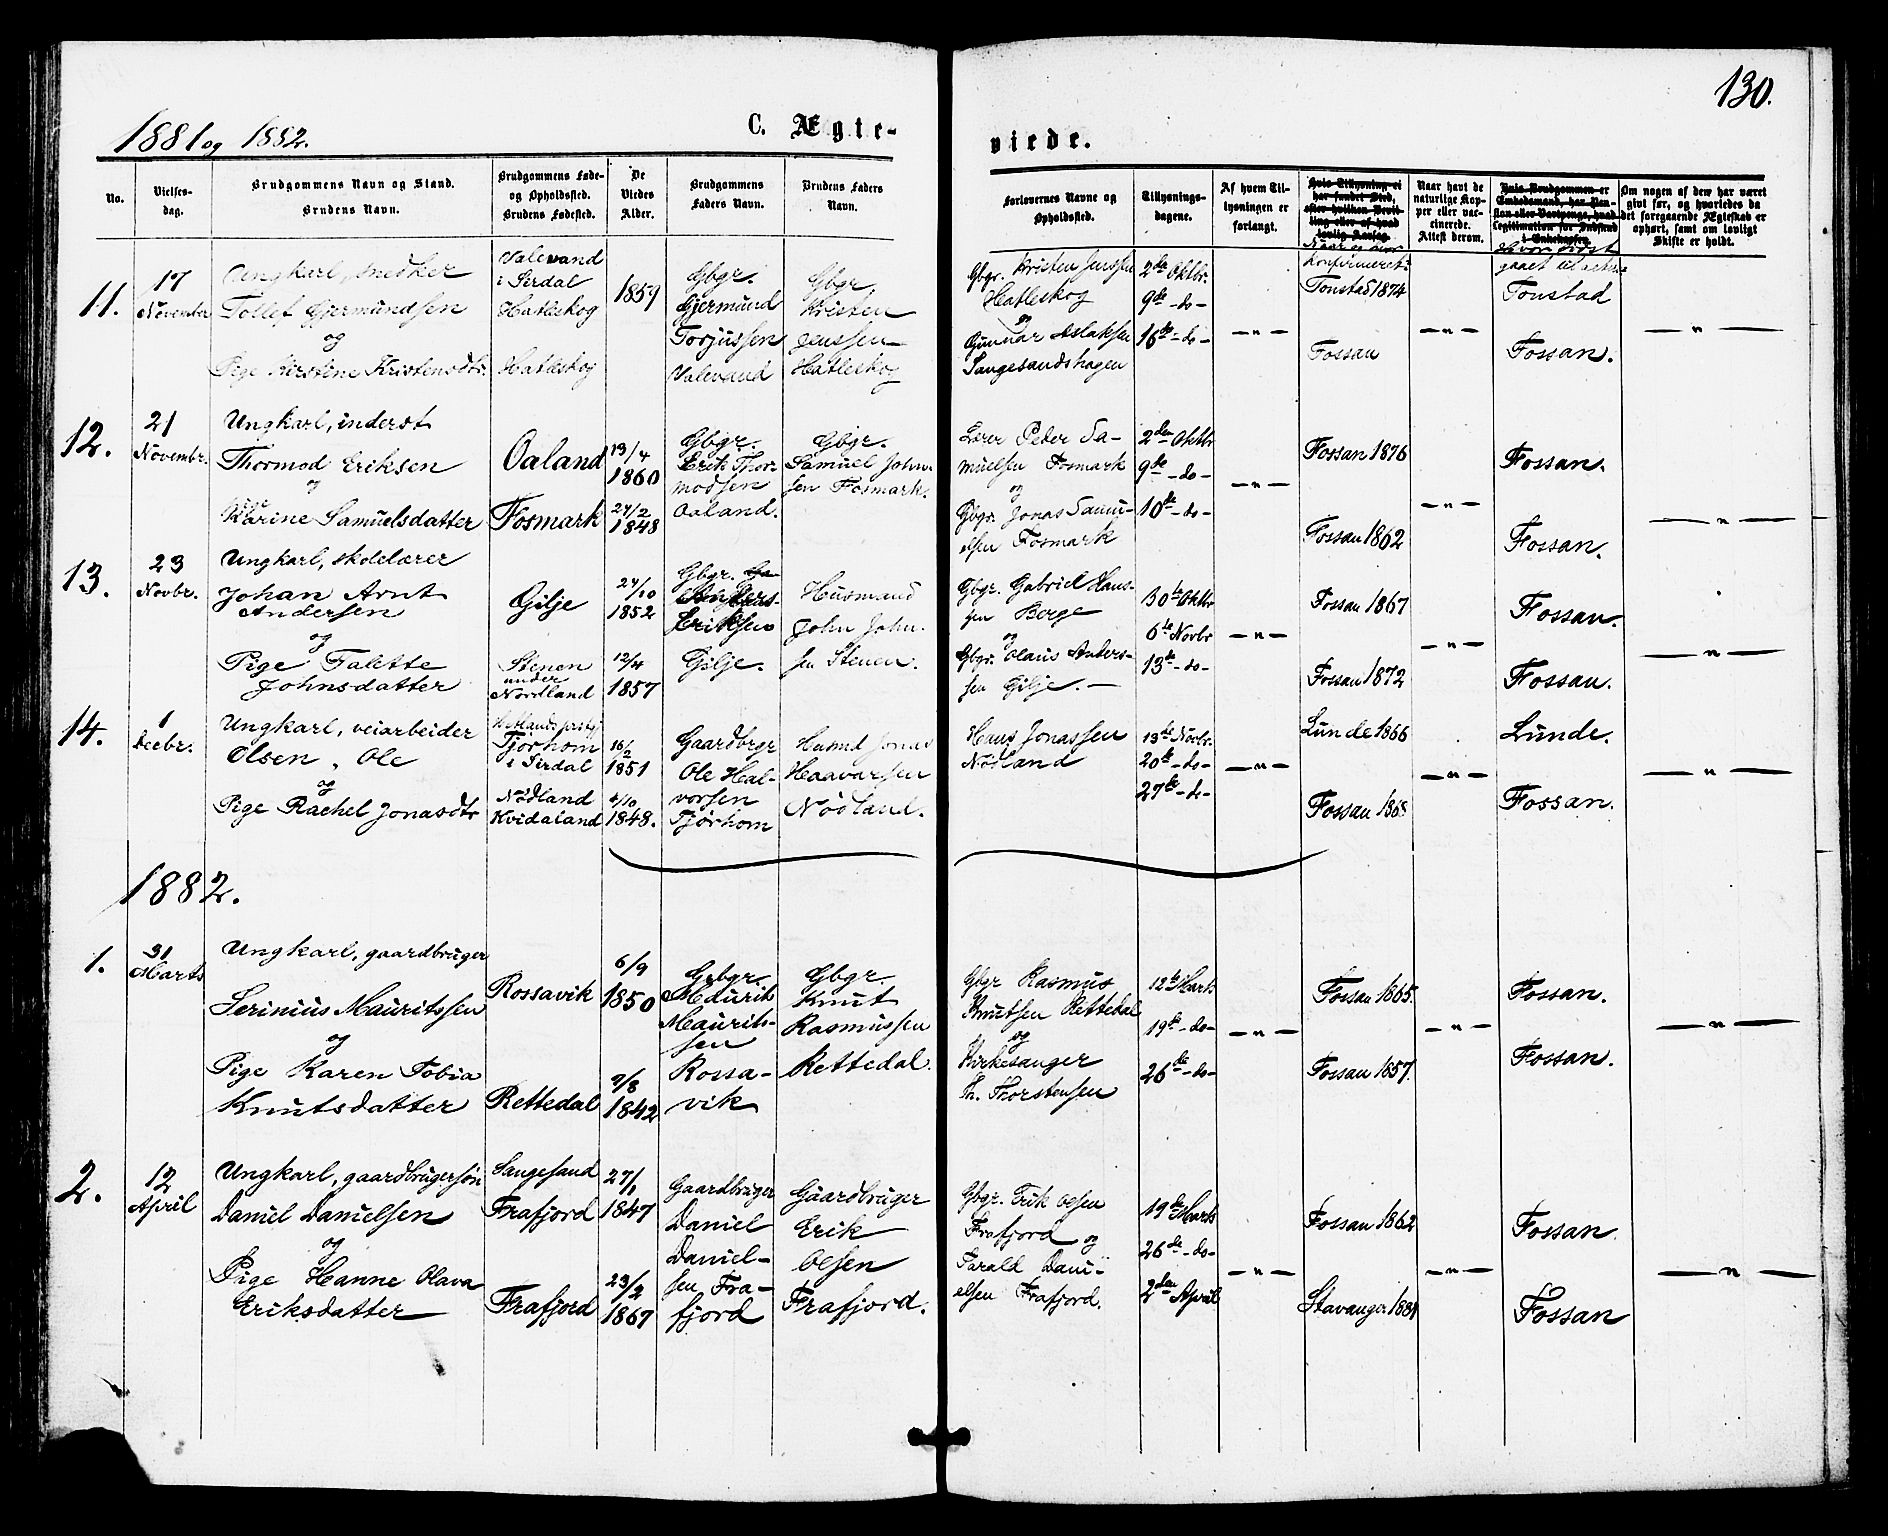 130.
1881 og 1882.
C. Ægte-
viede.
No.
Vielses-
dag.
Brudgommens Navn og Stand.
Brudens Navn.
Brudgommens Føde-
og Opholdssted.
Brudens Fødested.
De
Viedes
Alder.
Brudgommens
Faders Navn.
Brudens Faders
Navn.
Forlovernes Navne og
Opholdssted.
Tillysnings-
dagene.
Af hvem Til-
lysningen er
forlangt.
Hvis Tillysning ei
har fundet Sted,
efter hvilken Bevil-
ling eller af hvad
lovlig Aarsag.
Naar havt de
naturlige Kop-
per eller vac-
cinerede.
Attest derom.
Hvis Brudgommen er
Embedsmand, har Pen-
sion eller Vartpenge, hvad
Legitimation for Indskud
i Enkekassen.
Om nogen af dem har været
gift før, og hvorledes da
det foregaaende Ægteskab er
ophørt, samt om lovligt
Skifte er holdt.
11.
17
November
Ungkarl, snedker
Tollef Gjermundsen
og
Pige Kirstine Kristensdtr.
Valevand
i Sirdal
Hatleskog
Hatleskog
1859
Gbgr.
Gjermund
Torjussen
Valevand
Gbgr.
Kristen
Jenssen
Hatleskog
Gbgr. Kristen Jenssen
Hatleskog
og
Gunnar Aslaksen
Sangesandshagen
2de Oktbr.
9de -do-
16de -do-
-"-
Tonstad 1874
Fossan
-"-
Tonstad
Fossan.
-"-
12.
21
Novembr.
Ungkarl, inderst
Thormod Eriksen
og
Karine Samuelsdatter
Oaland
Fosmark
13/4
1860
24/2
1848
Gbgr.
Erik Thor-
modsen
Oaland.
Gbgr.
Samuel John-
sen Fosmark.
Lærer Peder Sa-
muelsen Fosmark
og
Gbgr. Jonas Samu-
elsen Fosmark
2den Oktbr
9de -do-
10de -do-
-"-
Fossan 1876
Fossan 1862
-"-
Fossan.
Fossan.
-"-
13.
23
Novbr.
Ungkarl, skolelærer
Johan Arnt
Andersen
og
Pige Talette
Johnsdatter
Gilje
Stenen
under
Nordland
24/10
1852
12/4
1857
Gbgr.
Eriksen
Gilje.
Husmand
John John-
sen Stenen.
Gbgr. Gabriel Hans-
sen Berge
og
Gbgr. Olaus Anders-
sen Gilje.
30te Oktbr
6te Novbr
13de -do-
-"-
Fossan 1867
Fossan 1872
-"-
Fossan.
Fossan.
-"-
14.
1
Decbr.
Ungkarl, veiarbeider
Olsen, Ole
og
Pige Rachel Jonasdtr
Tjørhom
i Sirdal
Nødland
Kvidaland
16/2
1851
4/10
1848.
Gaardbrgr
Ole Hal-
vorsen
Tjørhom
Husmd Jonas
Haavarssen
Nødland.
Hans Jonassen
Nødland
13de Novbr.
20de -do-
27de -do-
-"-
Lunde 1866
Fossan 1863
-"-
Lunde.
Fossan.
-"-
1882.
1.
31
Marts
Ungkarl, gaardbruger
Serinius Mauritssen
og
Pige Karen Tobia
Knutsdatter
Rossavik
Rettedal
6/9
1850
9/8
1842
Grbgr.
Maurits
Maurits-
sen
Rossa-
vik
Gbgr.
Knut
Rasmussen
Rettedal.
Gbgr Rasmus
Knutsen Rettedal
og
Kirkesanger
Th. Thorstensen
12te Mark
19de -do-
26de -do-
-"-
Fossan 1865.
Fossan 1857.
-"-
Fossan.
Fossan.
-"-
2.
12
April
Ungkarl, gaardbrugersøn
Daniel Danielsen
og
Pige Hanne Olava
Eriksdatter
Sangesand
Frafjord
Frafjord
27/1
1847
23/2
1867
Gaardbruger
Daniel
Daniel-
sen Fra-
fjord
Gaardbruger
Erik
Olsen
Frafjord.
Gbgr. Erik Olsen
Frafjord og
Tarald Dani-
elsen Frafjord.
19de Marts
26de -do-
2den April
-"-
Fossan 1862
Stavanger 1881
-"-
Fossan
Fossan
-"-